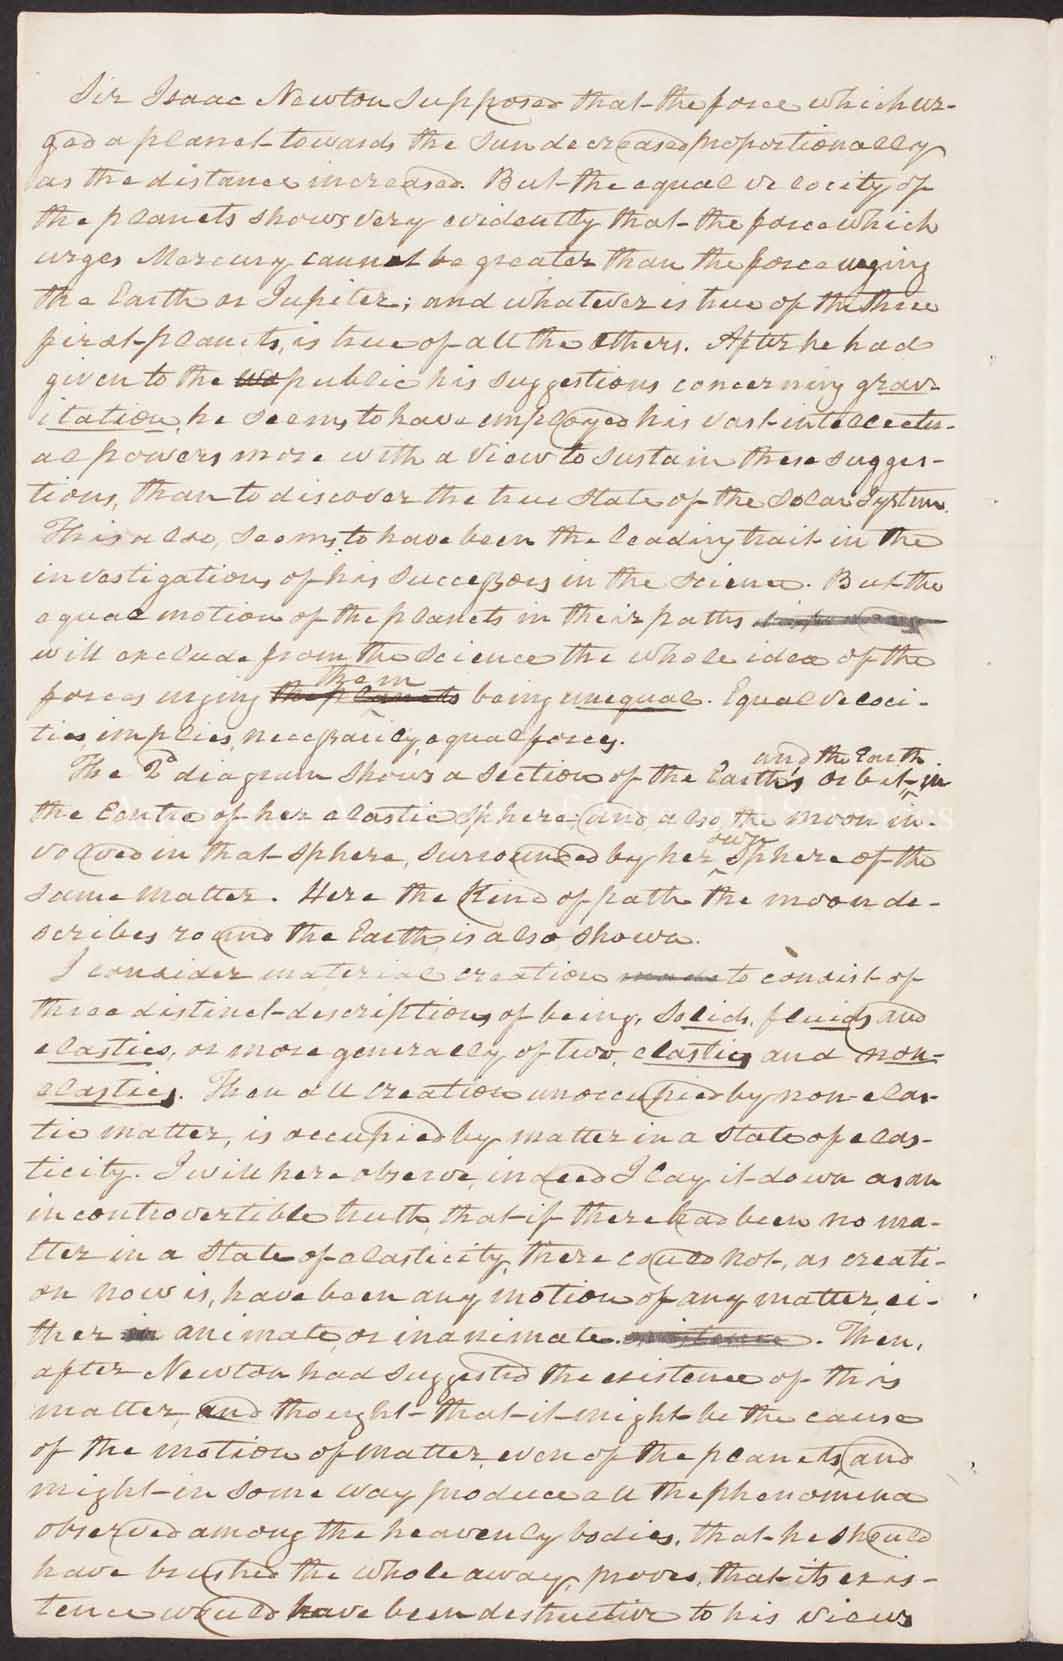 Sir Isaac Newton supposed that the force which ur-
ged a planet towards the Sun decreased proportionally
as the distance increased. But the equal velocity of
the planets shows very evidently that the force which
urges Mercury cannot be greater than the force urging
the Earth or Jupiter; and whatever is true of the three
first planets, is true of all the others. After he had
given to the public his suggestions concerning grav-
itation, he seems to have employed his vast intellectu-
al powers more with a view to sustain these sugges-
tions, than to discover the true state of the Solar System.
This also, seems, to have been the leading trait in the
investigations of his successors in the science. But the
equal motion of the planets in their paths
will exclude from the science the whole idea of the
them
forces urging the planets being unequal. Equal veloci-
ties, implies, necessarily, equal forces.
and the Earth
The 2d diagram shows a section of the Earth's orbit in
the Centre of her elastic sphere; and, also, the moon in-
own
volved in that sphere, surrounded by her sphere of the
same matter. Here the kind of path the moon de-
scribes round the Earth, is also shown.
I consider material creation made to consist of
three distinct descriptions of being, solids, fluids and
elastics, or more generally of two, elastics and non-
elastics. Then all creation unoccupied by non-elas-
tic matter, is occupied by matter in a state of elas-
ticity. I will here observe, indeed I lay it down as an
incontrovertible truth, that if there had been no ma-
tter in a state of elasticity, there could not, as creati-
on now is, have been any motion of any matter, ei-
ther in animate, or inanimate. existence. Then,
after Newton had suggested the existence of this
matter, and thought that it might be the cause
of the motion of matter, even of the planets, and
might in some way produce all the phenomena
observed among the heavenly bodies, that he should
have brushed the whole away, proves, that its exis-
tence would have been destructive to his views